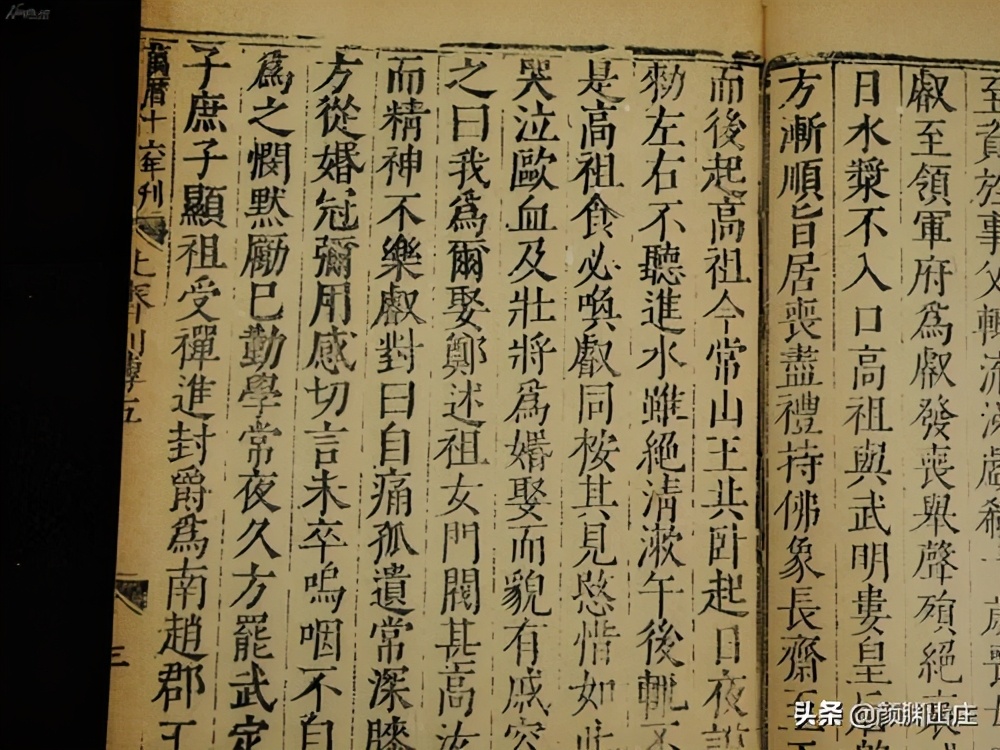 至資於事父輒流涕歔欷十歲喪
叡至領軍府爲叡發喪舉聲殞絕哀
日水漿不入口高祖與武明婁皇后
方漸順旨居喪盡禮持佛象長齋至
而後起高祖令常山王共卧起日夜說
勑左右不聽進水雖絕清漱午後輒不
是高祖食必喚叡同桉其見愍惜如此
哭泣歐血及壯將爲婚娶而貌有戚容
之曰我爲爾娶鄭述祖女門閥甚高汝
而精神不樂叡對曰自痛孤遺常深膝
方從婚冠彌用感切言未卒嗚咽不自
爲之憫默勵已勤學常夜久方罷武定
子庶子顯祖受禪進封爵爲南趙郡王
萬曆十六年刊 北齊列傳五 三
头条 @颜渊山庄